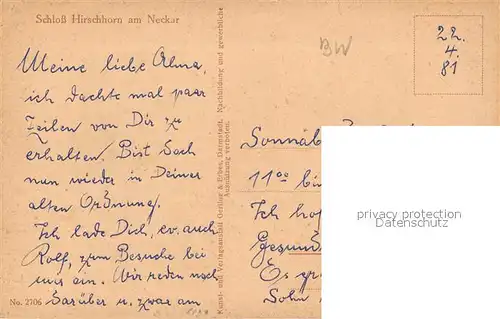 Schloß Hirschhorn am Neckar
Meine liebe Alma,
ich dachte mal paar
Zeilen von Dir zu
erhalten. Bist doch
nun wieder in Deiner
alten Ordnung.
Ich lade Dich, ev. auch
Rolf, zum Besuche bei
mir ein. Wir reden noch
darüber u. zwar am
No. 2706
Kunst- und Verlagsanstalt Gerling & Erben, Darmstadt. Nachbildung und gewerbliche
Ausnützung verboten.
BW
22.
4.
81
Sonnab
11⁰⁰ bi
Ich ho
Gesund
Es gr
Sohn
privacy protection
Datenschutz